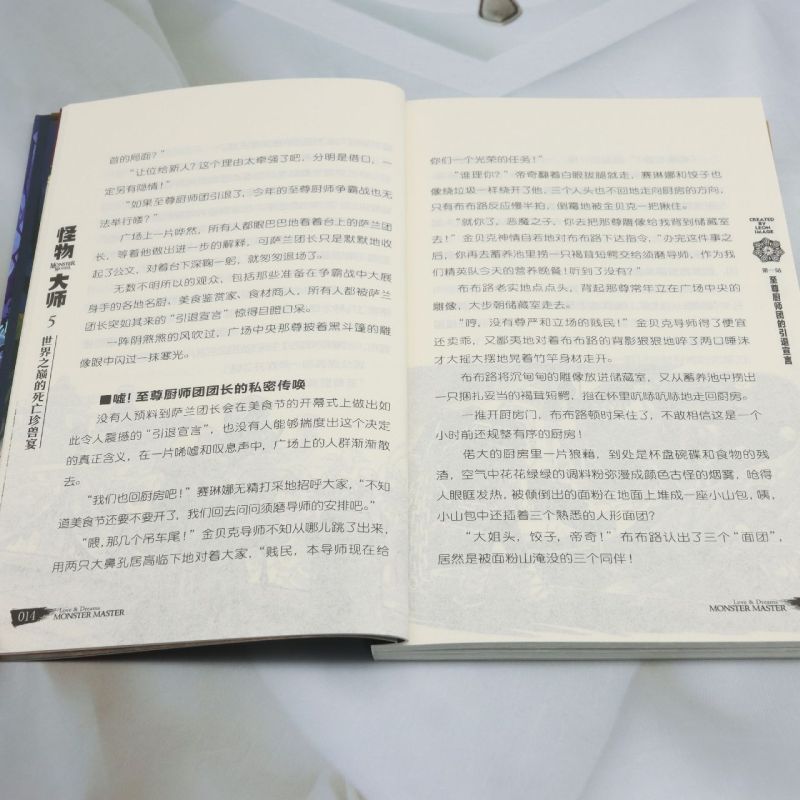 首的局面？”
“让位给新人？这个理由太牵强了吧，分明是借口，一
定另有隐情！”
“如果至尊厨师团引退了，今年的至尊厨师争霸战也无
法举行喽？”
广场上一片哗然，所有人都眼巴巴地看着台上的萨兰团
长，等着他做出进一步的解释，可萨兰团长只是默默地收
起了公文，对着台下深鞠一躬，就匆匆退场了。
无数不明所以的观众，包括那些准备在争霸战中大展
身手的各地名厨、美食鉴赏家、食材商人，所有人都被萨兰
团长突如其来的“引退宣言”惊得目瞪口呆。
一阵阴煞煞的风吹过，广场中央那尊披着黑斗篷的雕
像眼中闪过一抹寒光。
■嘘！至尊厨师团团长的私密传唤
没有人预料到萨兰团长会在美食节的开幕式上做出如
此令人震撼的“引退宣言”，也没有人能够揣度出这个决定
的真正含义，在一片唏嘘和叹息声中，广场上的人群渐渐散
去。
“我们也回厨房吧！”赛琳娜无精打采地招呼大家，“不知
道美食节还要不要开了，我们回去问问须磨导师的安排吧。”
“喂，那几个吊车尾！”金贝克导师不知从哪儿跳了出来，
用两只大鼻孔居高临下地对着大家，“贱民，本导师现在给
怪物大师
MONSTER MASTER
5
世界之巅的死亡珍兽宴
014
Love & Dreams
MONSTER MASTER
你们一个光荣的任务！”
“谁理你？”帝奇翻着白眼拔腿就走，赛琳娜和饺子也
像绕垃圾一样绕开了他，三个人头也不回地走向厨房的方向，
只有布布路反应慢半拍，倒霉地被金贝克一把揪住。
“就你了，恶魔之子，你去把那尊雕像给我背到储藏室
去！”金贝克神情自若地对布布路下达指令，“办完这件事之
后，你再去蓄养池里捞一只褐茸短鳄交给须磨导师，作为我
们精英队今天的营养晚餐！听到了没有？”
布布路老实地点点头，背起那尊常年立在广场中央的
雕像，大步朝储藏室走去。
“哼，没有尊严和立场的贱民！”金贝克导师得了便宜
还卖乖，又鄙夷地对着布布路的背影狠狠地啐了两口唾沫
才大摇大摆地晃着竹竿身材走开。
布布路将沉甸甸的雕像放进储藏室，又从蓄养池中捞出
一只捆扎妥当的褐茸短鳄，抱在怀里吭哧吭哧地走回厨房。
一推开厨房门，布布路顿时呆住了，不敢相信这是一个
小时前还规整有序的厨房！
偌大的厨房里一片狼藉，到处是杯盘碗碟和食物的残
渣，空气中花花绿绿的调料粉弥漫成颜色古怪的烟雾，呛得
人眼眶发热，被倾倒出的面粉在地面上堆成一座小山包，咦，
小山包中还插着三个熟悉的人形面团？
“大姐头，饺子，帝奇！”布布路认出了三个“面团”，
居然是被面粉山淹没的三个同伴！
CREATED
BY
LEON
IMAGE
第一站
至尊厨师团的引退宣言
Love & Dreams
MONSTER MASTER